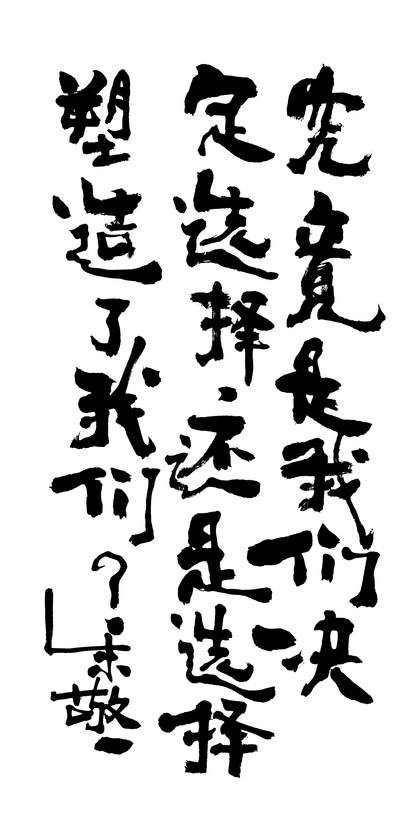 究竟是我们决
定选择，还是选择
塑造了我们？朱敬一